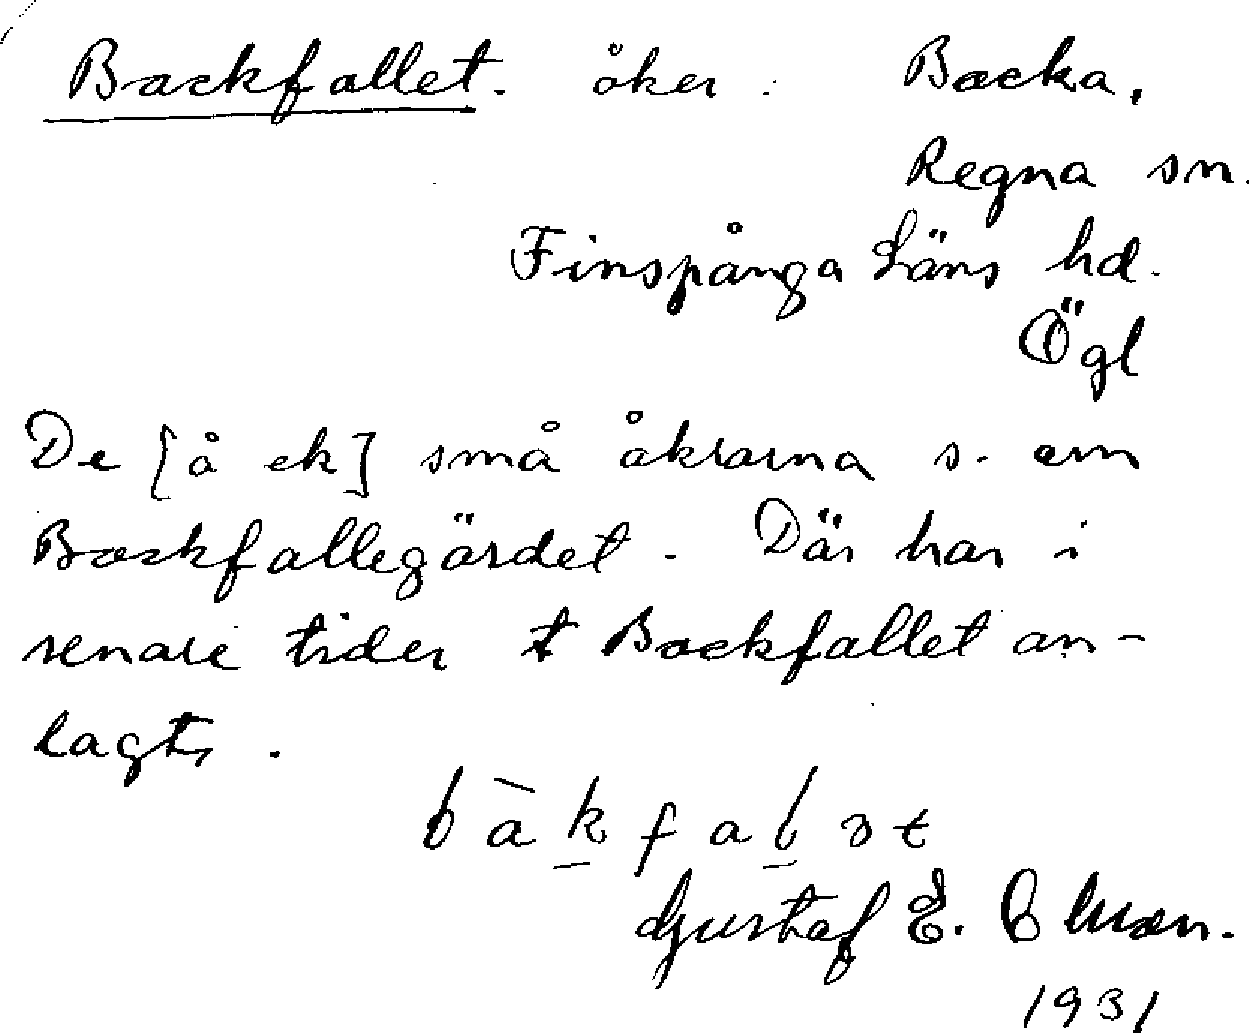 Backfallet. åker. Backa,
Regna sn.
Finspånga Läns hd.
Ögl
De [å ek] små åkrarna s. om
Backfallegärdet. Där har i
senare tider t Backfallet an-
lagts.
Gustaf E.
1931